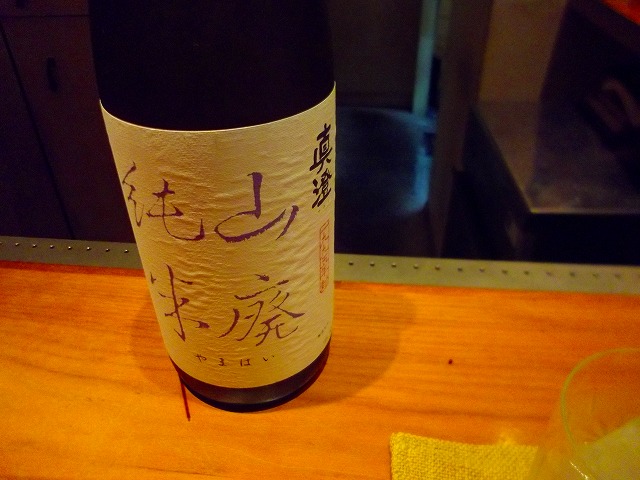 真澄
山廃
純米
やまはい